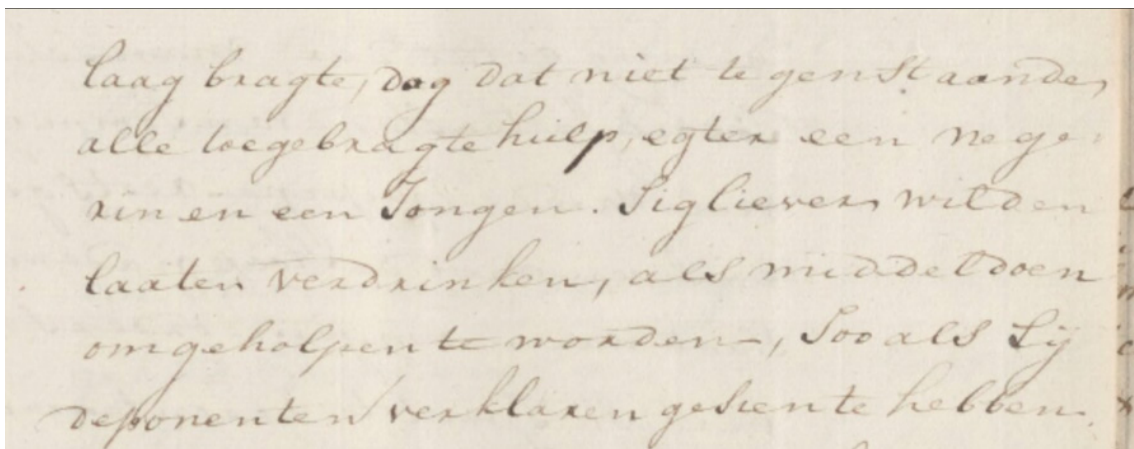 laag bragte, dog dat niet tegenstaande
alle toegebragte hulp, egter een nege
rin en een Jongen. Sig liever wilden
laaten verdrinken, als middel doen
om geholpen te worden, Soo als Sij
deponenten verklaren gesien te hebben.